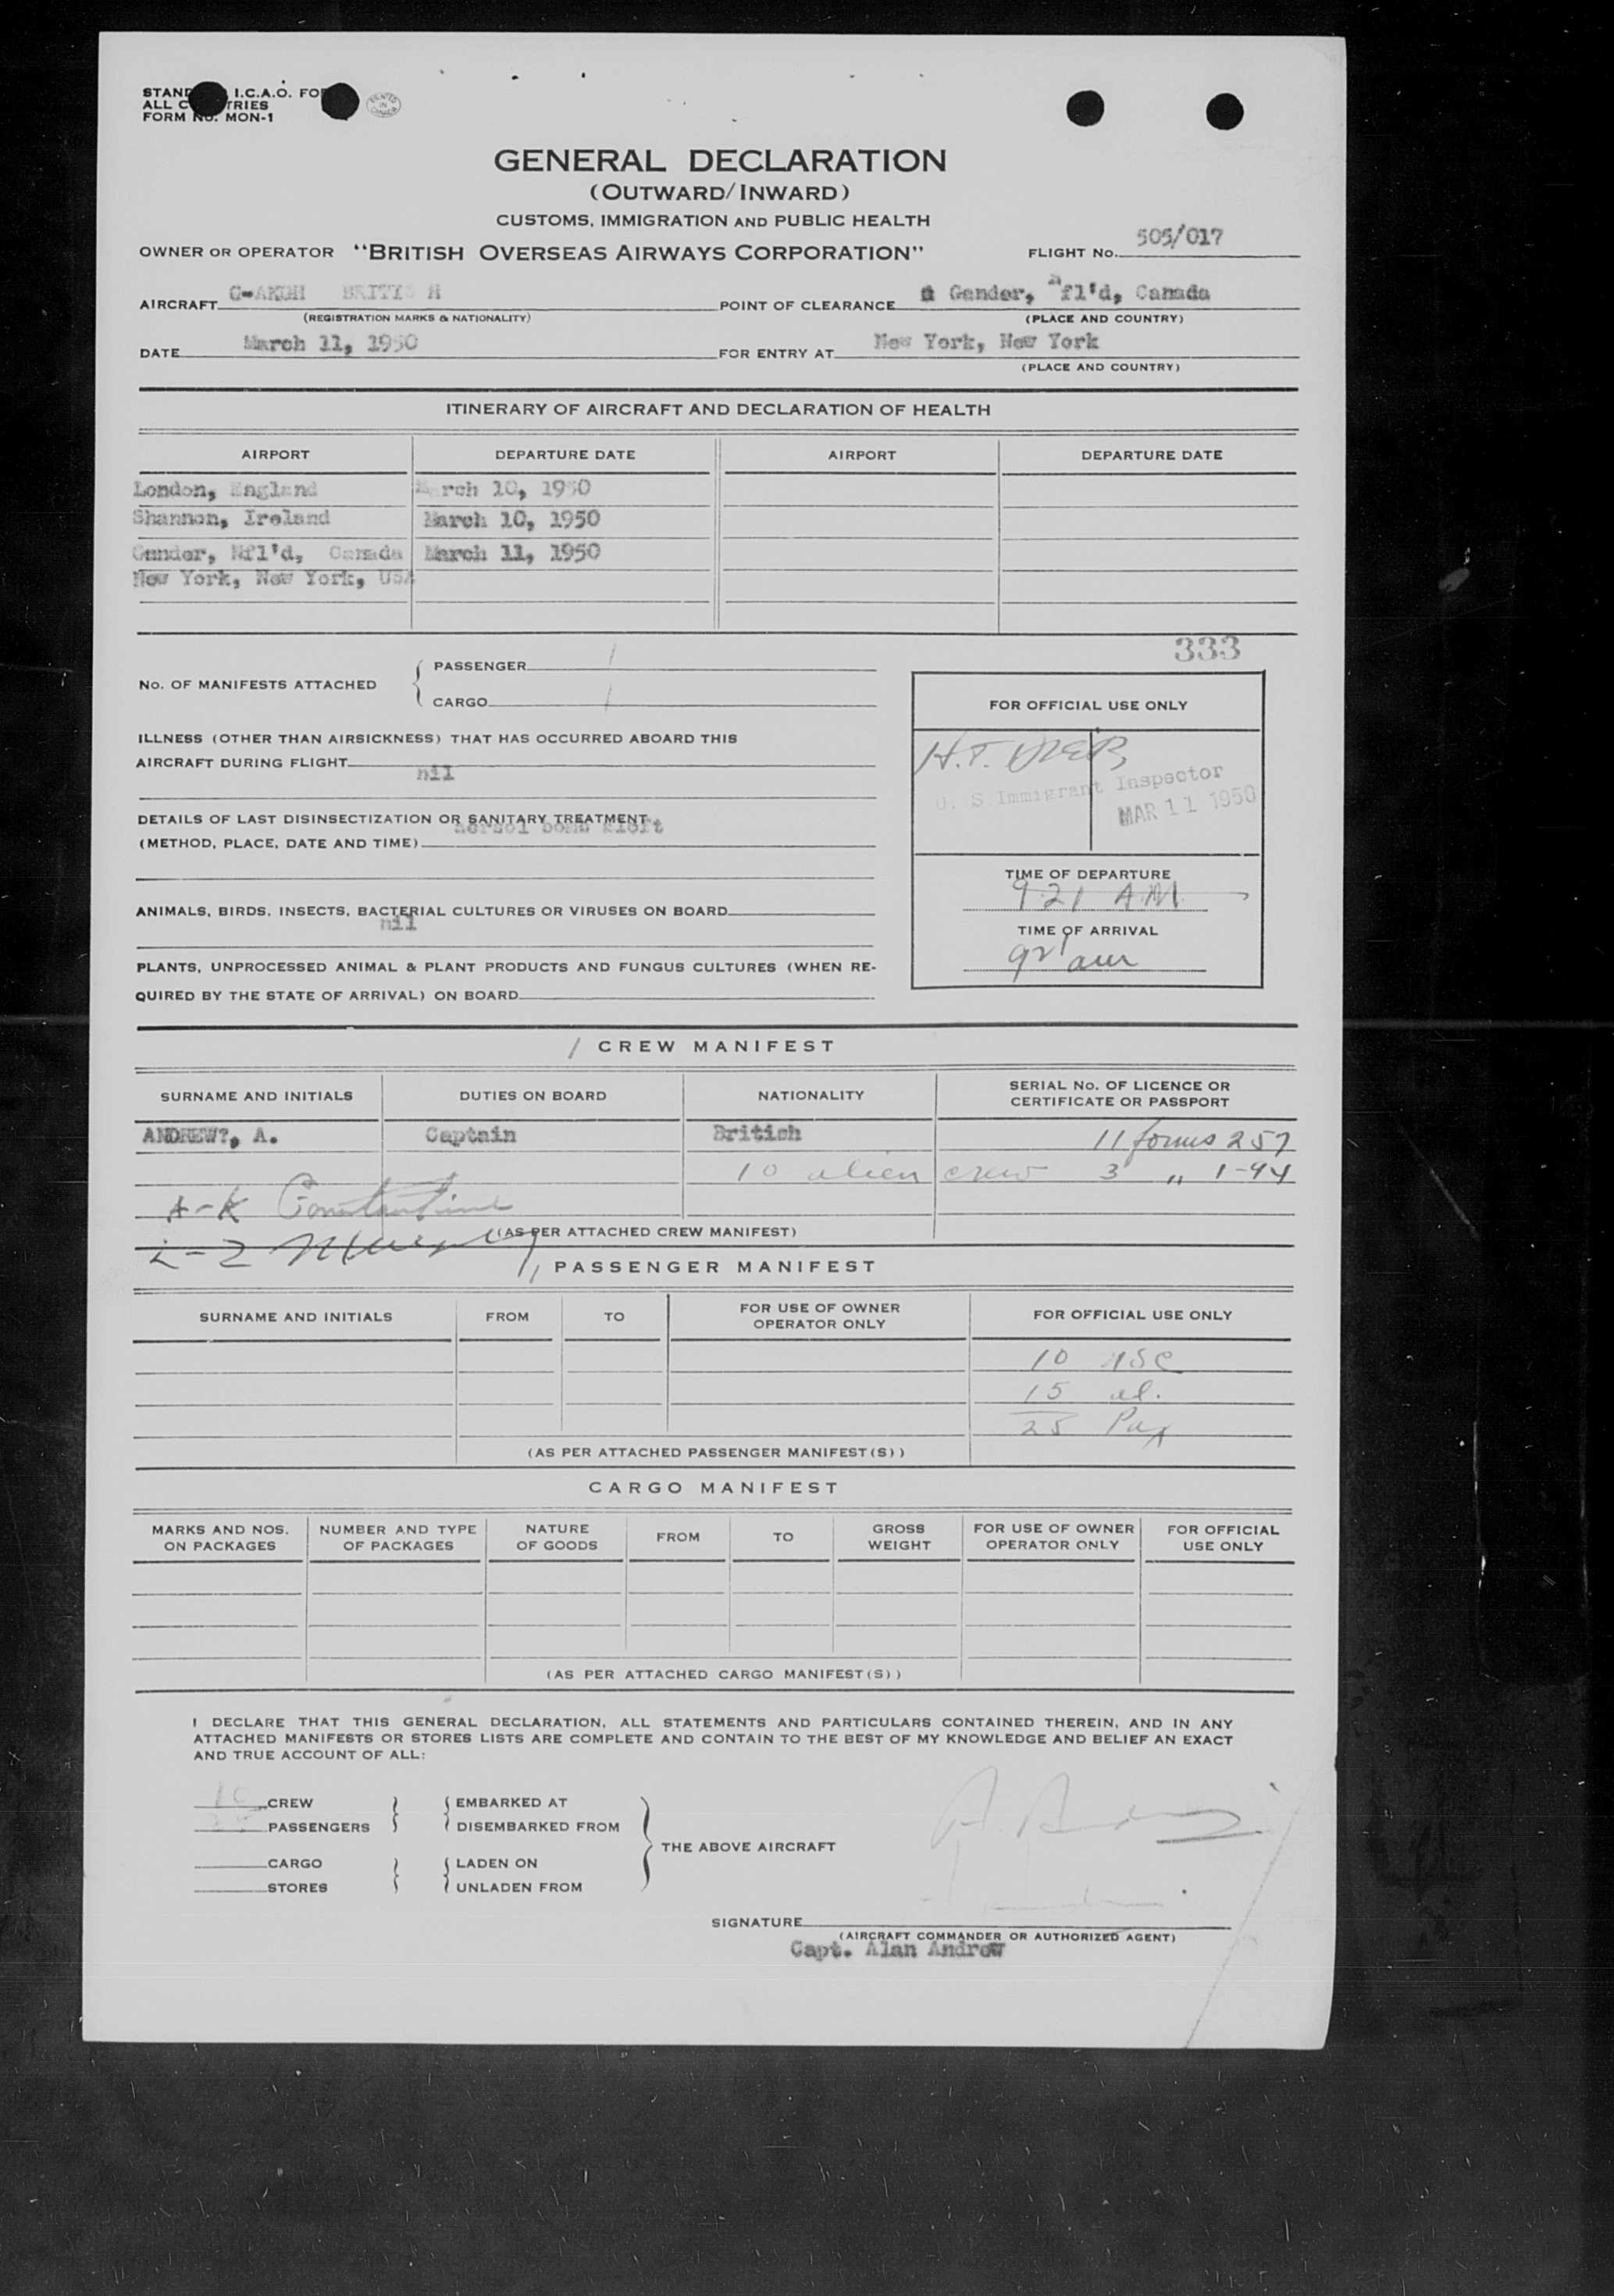 I.C.A.O.
ALL
FORM No. MON-1
PRINTED IN CANADA
GENERAL DECLARATION
(OUTWARD/INWARD)
CUSTOMS, IMMIGRATION AND PUBLIC HEALTH
OWNER OR OPERATOR "BRITISH OVERSEAS AIRWAYS CORPORATION" FLIGHT No. 505/017
AIRCRAFT BRITISH POINT OF CLEARANCE Gander, Nfl'd, Canada
(REGISTRATION MARKS & NATIONALITY) (PLACE AND COUNTRY)
DATE March 11, 1950 FOR ENTRY AT New York, New York
(PLACE AND COUNTRY)
ITINERARY OF AIRCRAFT AND DECLARATION OF HEALTH
AIRPORT DEPARTURE DATE AIRPORT DEPARTURE DATE
London, England March 10, 1950
Shannon, Ireland March 10, 1950
Gander, Nfl'd, Canada March 11, 1950
New York, New York, USA
333
No. OF MANIFESTS ATTACHED
PASSENGER 1
CARGO 1
FOR OFFICIAL USE ONLY
ILLNESS (OTHER THAN AIRSICKNESS) THAT HAS OCCURRED ABOARD THIS
AIRCRAFT DURING FLIGHT nil
H.T.
U. S. Immigrant Inspector
MAR 11 1950
DETAILS OF LAST DISINSECTIZATION OR SANITARY TREATMENT
(METHOD, PLACE, DATE AND TIME) aersol bomb
TIME OF DEPARTURE
9.21 A.M.
ANIMALS, BIRDS, INSECTS, BACTERIAL CULTURES OR VIRUSES ON BOARD
nil
TIME OF ARRIVAL
921 am
PLANTS, UNPROCESSED ANIMAL & PLANT PRODUCTS AND FUNGUS CULTURES (WHEN RE-
QUIRED BY THE STATE OF ARRIVAL) ON BOARD
/ CREW MANIFEST
SURNAME AND INITIALS DUTIES ON BOARD NATIONALITY SERIAL No. OF LICENCE OR
CERTIFICATE OR PASSPORT
ANDREW?, A. Captain British 11 forms 257
10 alien crew 3 " 1-94
A-K Constantine
(AS PER ATTACHED CREW MANIFEST)
L-Z Murphy
// PASSENGER MANIFEST
SURNAME AND INITIALS FROM TO FOR USE OF OWNER
OPERATOR ONLY FOR OFFICIAL USE ONLY
10 USC
15 al.
25 Pax
(AS PER ATTACHED PASSENGER MANIFEST(S))
CARGO MANIFEST
MARKS AND NOS.
ON PACKAGES NUMBER AND TYPE
OF PACKAGES NATURE
OF GOODS FROM TO GROSS
WEIGHT FOR USE OF OWNER
OPERATOR ONLY FOR OFFICIAL
USE ONLY
(AS PER ATTACHED CARGO MANIFEST(S))
I DECLARE THAT THIS GENERAL DECLARATION, ALL STATEMENTS AND PARTICULARS CONTAINED THEREIN, AND IN ANY
ATTACHED MANIFESTS OR STORES LISTS ARE COMPLETE AND CONTAIN TO THE BEST OF MY KNOWLEDGE AND BELIEF AN EXACT
AND TRUE ACCOUNT OF ALL:
10 CREW EMBARKED AT
PASSENGERS DISEMBARKED FROM
THE ABOVE AIRCRAFT
CARGO LADEN ON
STORES UNLADEN FROM
SIGNATURE
(AIRCRAFT COMMANDER OR AUTHORIZED AGENT)
Capt. Alan Andrew